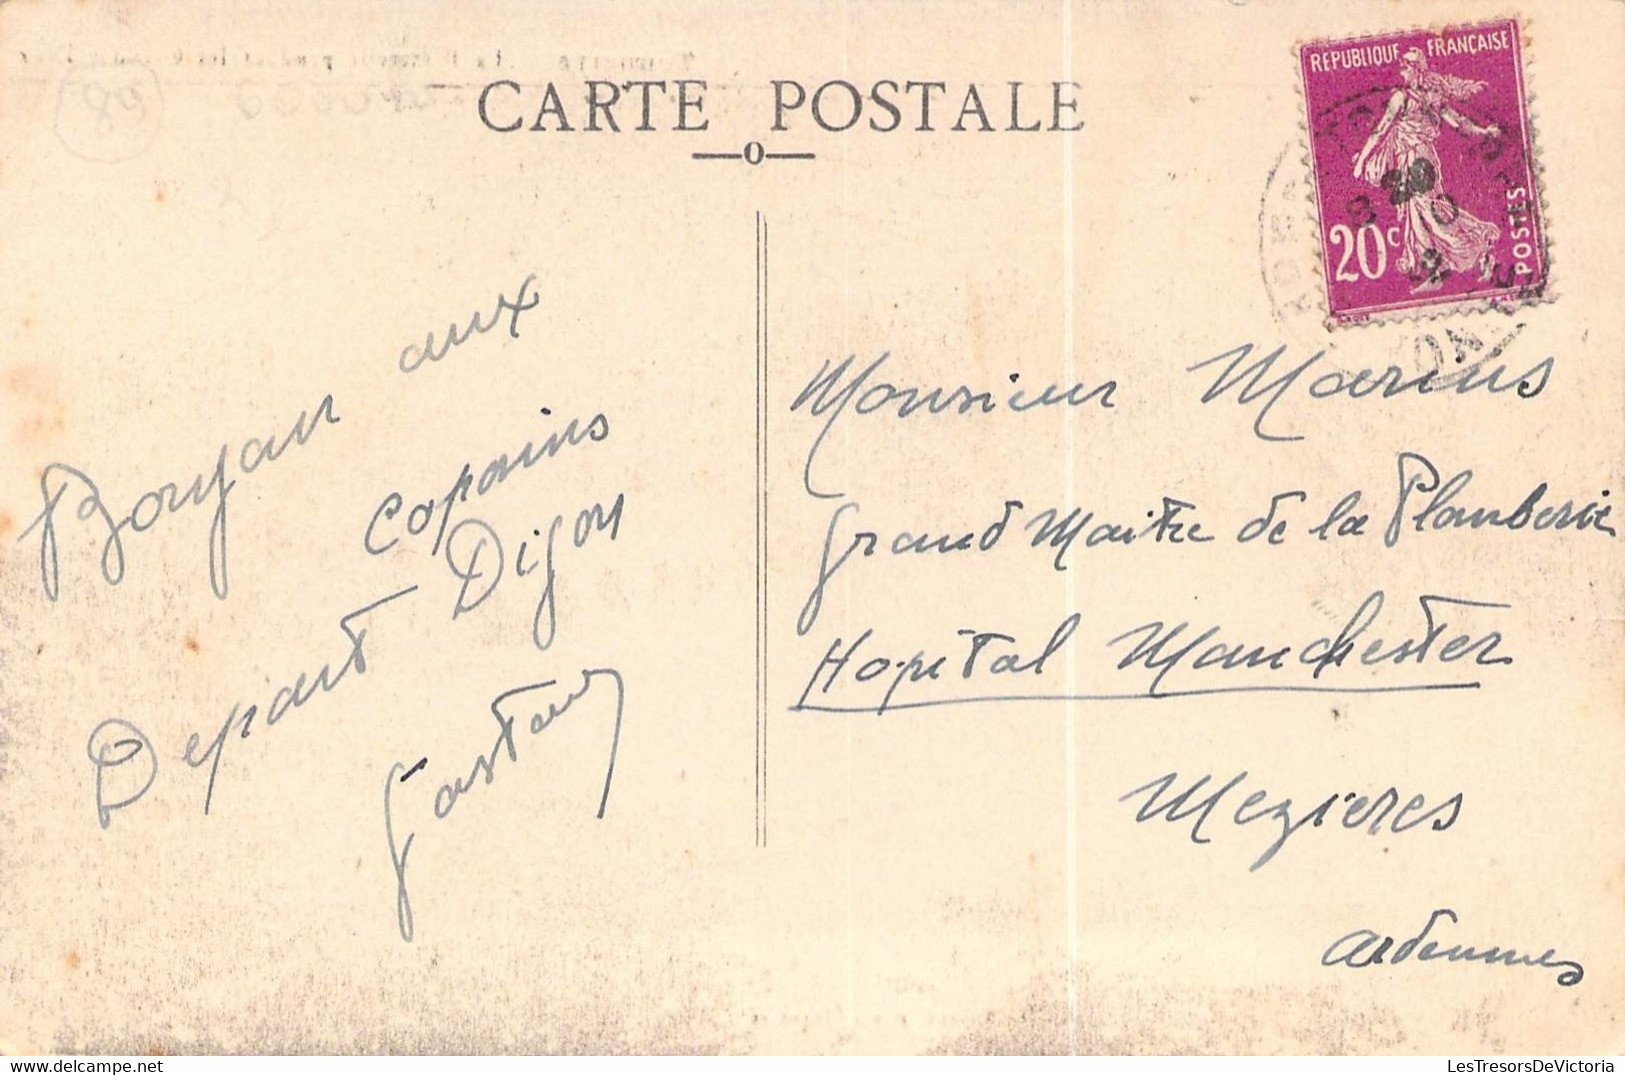 CARTE POSTALE
REPUBLIQUE FRANÇAISE
20c
POSTES
Bonjour aux
copains
Depart Dijon
Gaston
Monsieur Marius
Grand Maitre de la Plomberie
Hopital Manchester
Mezieres
Ardennes
89
LesTresorsDeVictoria